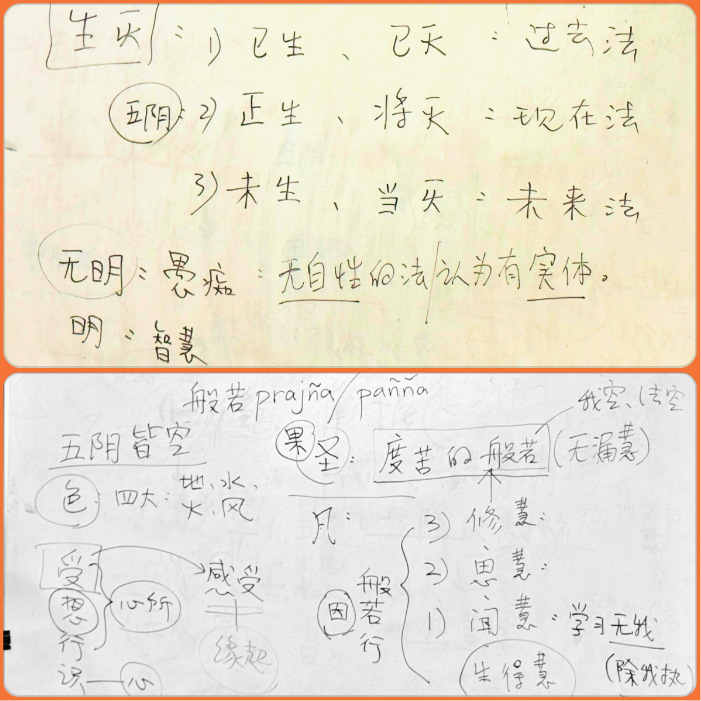 生灭：1) 已生、已灭：过去法
五阴：2) 正生、将灭：现在法
3) 未生、当灭：未来法
无明：愚痴：无自性的法/认为有实体。
明：智慧
般若 prajña/pañña
我空、法空
五阴皆空
果 圣：度苦的般若 (无漏慧)
色：四大：地、水、
火、风
凡：
因 般若行
3) 修慧：
2) 思慧：
1) 闻慧：学习无我
(除我执)
生得慧
受
想
行
识 — 心
心所
感受
缘起